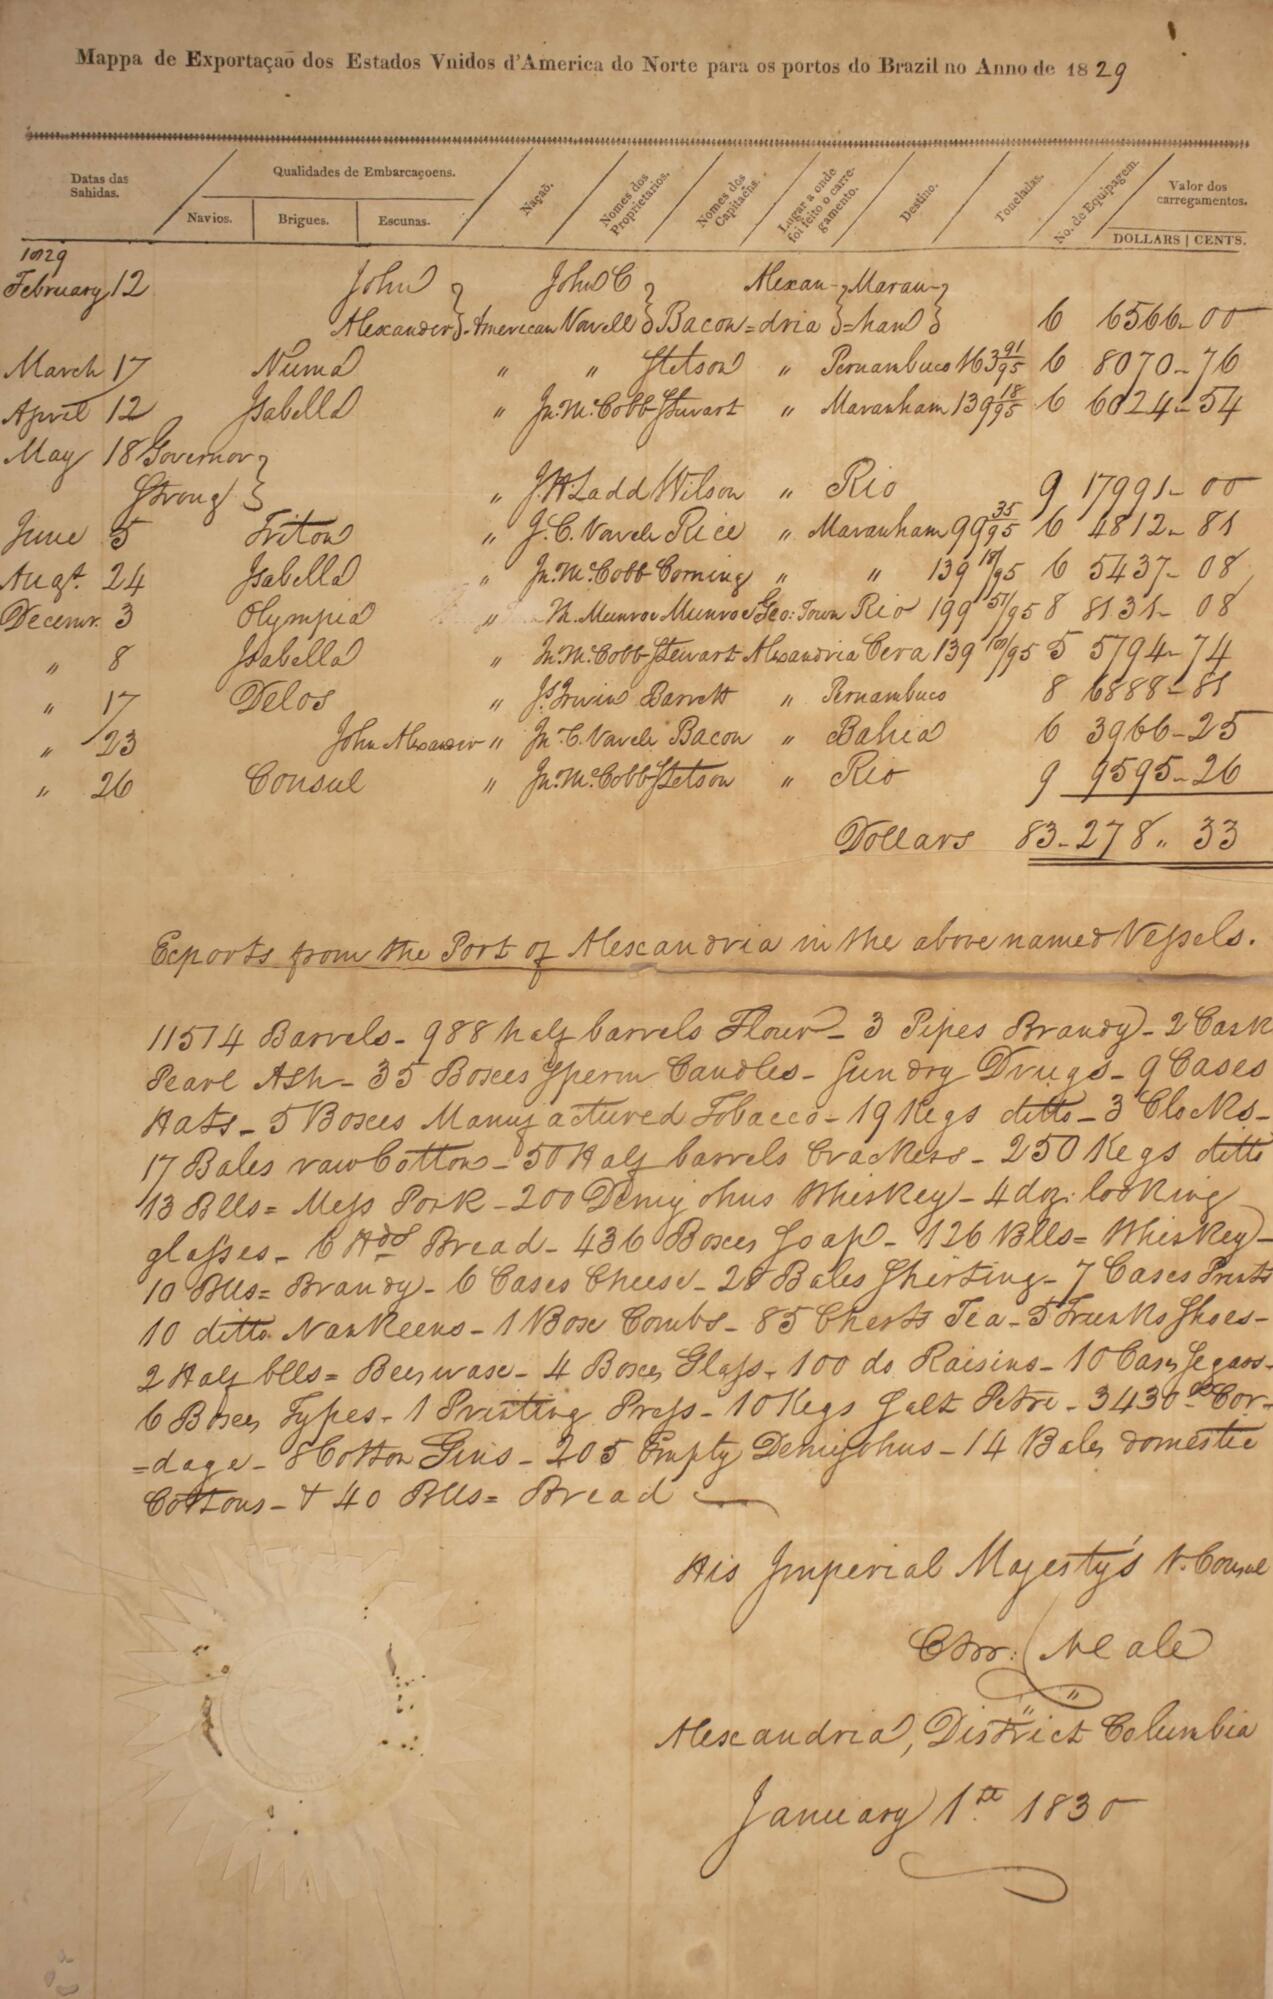 Mappa de Exportação dos Estados Vnidos d'America do Norte para os portos do Brazil no Anno de 1829
Datas das Sahidas. Qualidades de Embarcaçoens. Navios. Brigues. Escunas. Nação. Nomes dos Proprietarios. Nomes dos Capitaens. Lugar a onde foi feito o carregamento. Destino. Toneladas. No. de Equipagem. Valor dos carregamentos. DOLLARS | CENTS.
1829
February 12 John John C Alexan- Maran-
Alexander American Vowell Bacon =dria =ham 6 6566-00
March 17 Numa " " Stetson " Pernambuco 163 91/95 6 8070-76
April 12 Isabella " Jn. McCobb Stewart " Maranham 139 18/95 6 6024-54
May 18 Governor
Strong " J H Ladd Wilson " Rio 9 17991-00
June 5 Triton " J. C. Vowell Rice " Maranham 99 35/95 6 4812-81
Augt. 24 Isabella " Jn. McCobb Corning " " 139 18/95 6 5437-08
Decemr. 3 Olympia " Th. Munroe Munroe Geo: Town Rio 199 51/95 8 8131-08
" 8 Isabella " Jn. McCobb Stewart Alexandria Cera 139 18/95 5 5794-74
" 17 Delos " Js. Irwin Barrett " Pernambuco 8 6888-81
" 23 John Alexander " Jn. C. Vowell Bacon " Bahia 6 3966-25
" 26 Consul " Jn. McCobb Stetson " Rio 9 9595-26
Dollars 83-278" 33
Exports from the Port of Alexandria in the above named Vessels.
11514 Barrels- 988 half barrels Flour- 3 Pipes Brandy- 2 Cask
Pearl Ash- 35 Boxes Sperm Candles- Sundry Drugs- 9 Cases
Hats- 5 Boxes Manufactured Tobacco- 19 Kegs ditto- 3 Clocks-
17 Bales raw Cotton- 50 Half barrels Crackers- 250 Kegs ditto
13 Blls= Mess Pork- 200 Demijohns Whiskey- 4 doz: looking
glasses- 6 Hds Bread- 436 Boxes Soap- 126 Blls= Whiskey-
10 Blls= Brandy- 6 Cases Cheese- 28 Bales Shirting- 7 Cases Prints
10 ditto Nankeens- 1 Box Combs- 85 Chests Tea- 5 Trunks Shoes-
2 Half blls= Beeswax- 4 Boxes Glass- 100 do Raisins- 10 Cases Segars-
6 Boxes Types- 1 Printing Press- 10 Kegs Salt Petre- 3430 lbs Cor-
=dage- 8 Cotton Gins- 205 Empty Demijohns- 14 Bales domestic
Cottons- & 40 Blls= Bread
His Imperial Majesty's V. Consul
Chrr: Neale
Alexandria, District Columbia
January 1st 1830